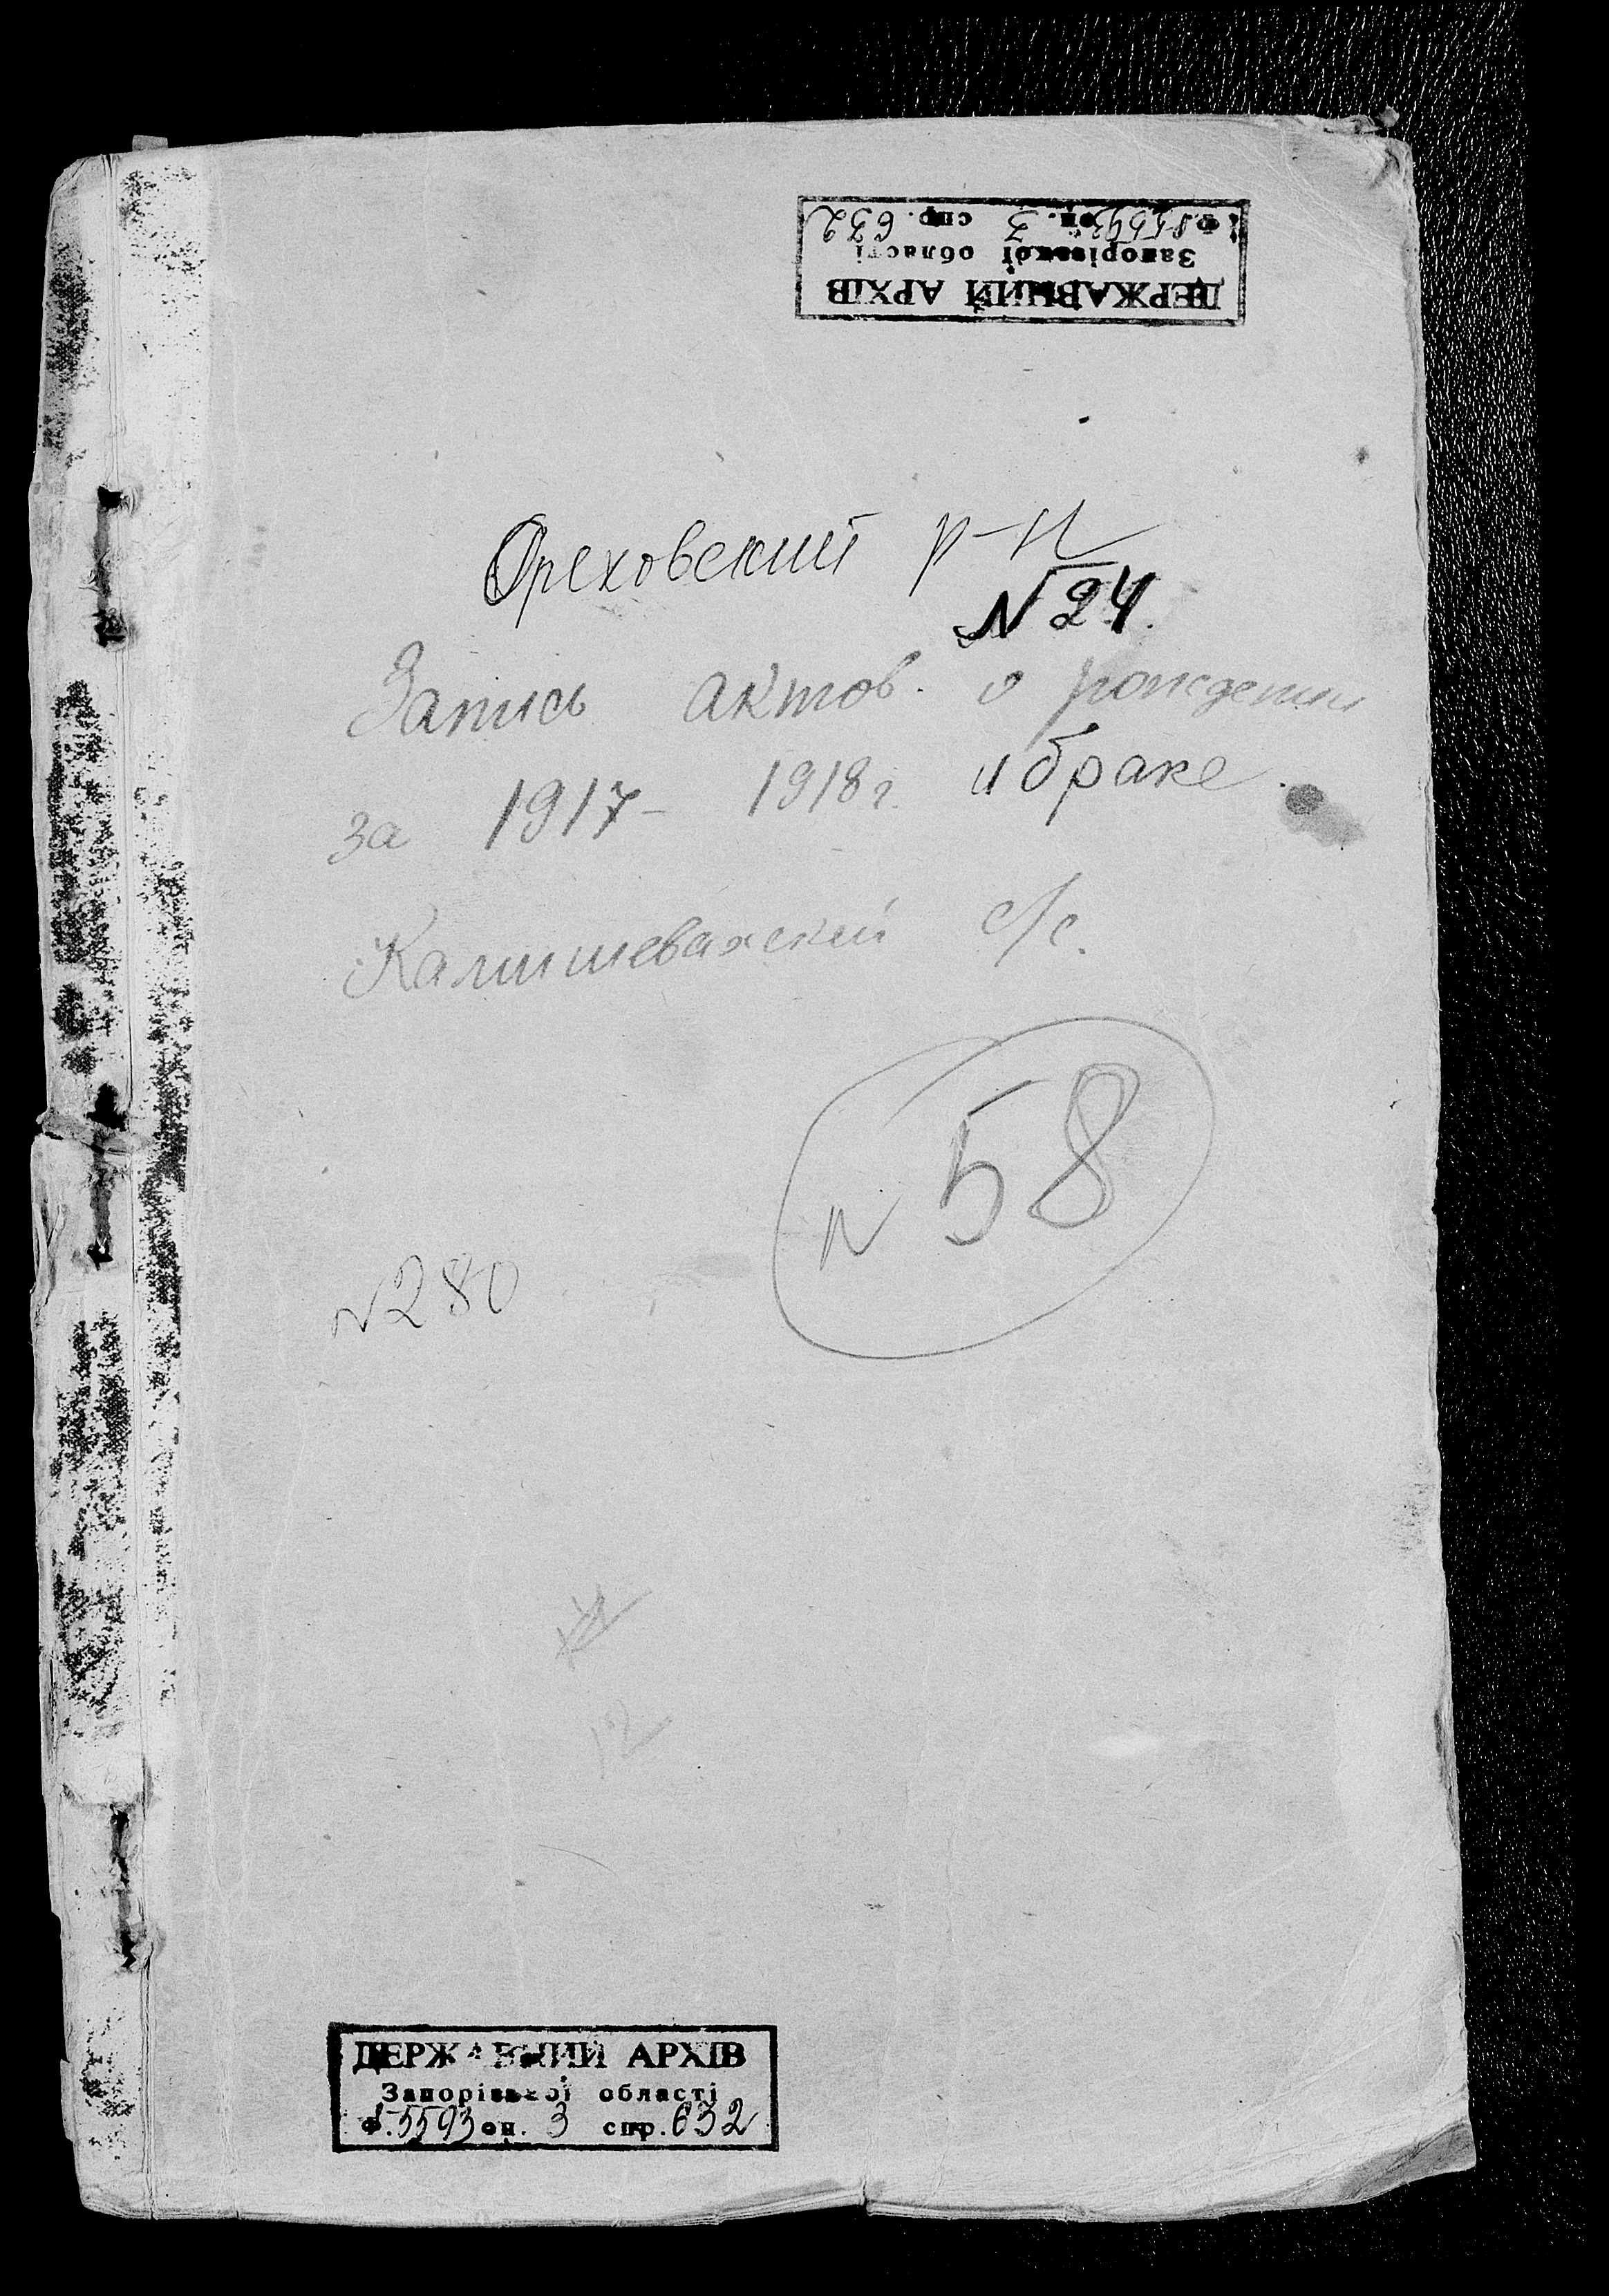 ДЕРЖАВНИЙ АРХІВ
Запорізької області
Ф. 5593 оп. 3 спр. 632
Ореховский р-н
N 24.
Запись актов о рождении
за 1917- 1918 г. и браке
Камышевахский с/с.
N 58
N 280
12
ДЕРЖАВНИЙ АРХІВ
Запорізької області
Ф. 5593 оп. 3 спр. 632